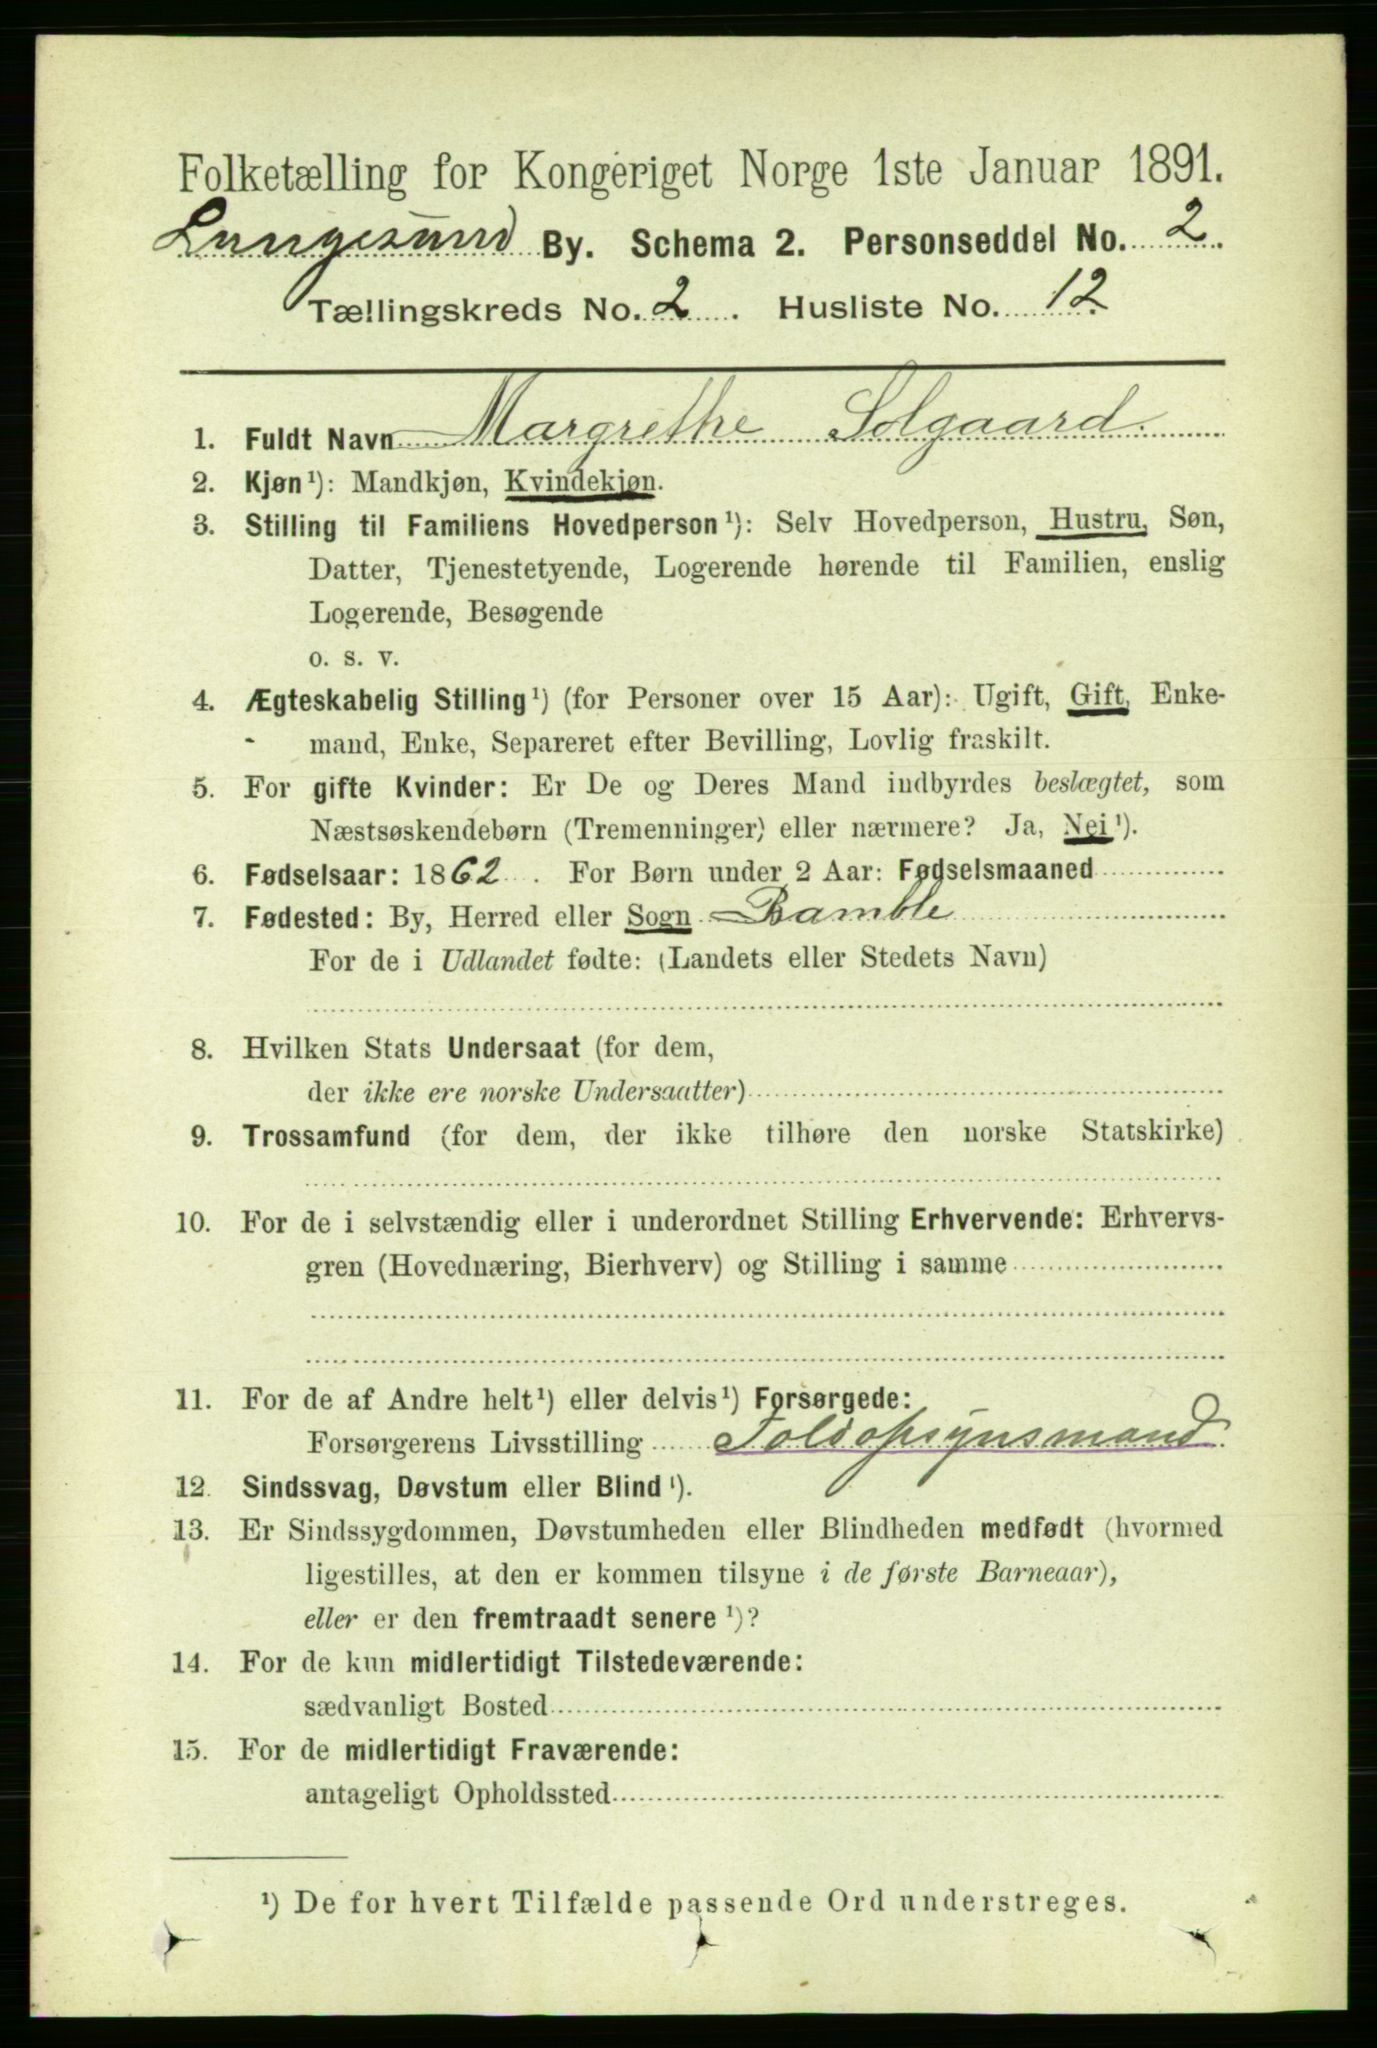 Folketælling for Kongeriget Norge 1ste Januar 1891.
Langesund By. Schema 2. Personseddel No. 2
Tællingskreds No. 2. Husliste No. 12.
1. Fuldt Navn Margrethe Solgaard.
2. Kjøn¹): Mandkjøn, Kvindekjøn.
3. Stilling til Familiens Hovedperson¹): Selv Hovedperson, Hustru, Søn,
Datter, Tjenestetyende, Logerende hørende til Familien, enslig
Logerende, Besøgende
o. s. v.
4. Ægteskabelig Stilling¹) (for Personer over 15 Aar): Ugift, Gift, Enke-
mand, Enke, Separeret efter Bevilling, Lovlig fraskilt.
5. For gifte Kvinder: Er De og Deres Mand indbyrdes beslægtet, som
Næstsøskendebørn (Tremenninger) eller nærmere? Ja, Nei¹).
6. Fødselsaar: 1862. For Børn under 2 Aar: Fødselsmaaned
7. Fødested: By, Herred eller Sogn Bamble
For de i Udlandet fødte: (Landets eller Stedets Navn)
8. Hvilken Stats Undersaat (for dem,
der ikke ere norske Undersaatter)
9. Trossamfund (for dem, der ikke tilhøre den norske Statskirke)
10. For de i selvstændig eller i underordnet Stilling Erhvervende: Erhvervs-
gren (Hovednæring, Bierhverv) og Stilling i samme
11. For de af Andre helt¹) eller delvis¹) Forsørgede:
Forsørgerens Livsstilling Toldopsynsmand.
12. Sindssvag, Døvstum eller Blind¹).
13. Er Sindssygdommen, Døvstumheden eller Blindheden medfødt (hvormed
ligestilles, at den er kommen tilsyne i de første Barneaar),
eller er den fremtraadt senere¹)?
14. For de kun midlertidigt Tilstedeværende:
sædvanligt Bosted
15. For de midlertidigt Fraværende:
antageligt Opholdssted
¹) De for hvert Tilfælde passende Ord understreges.